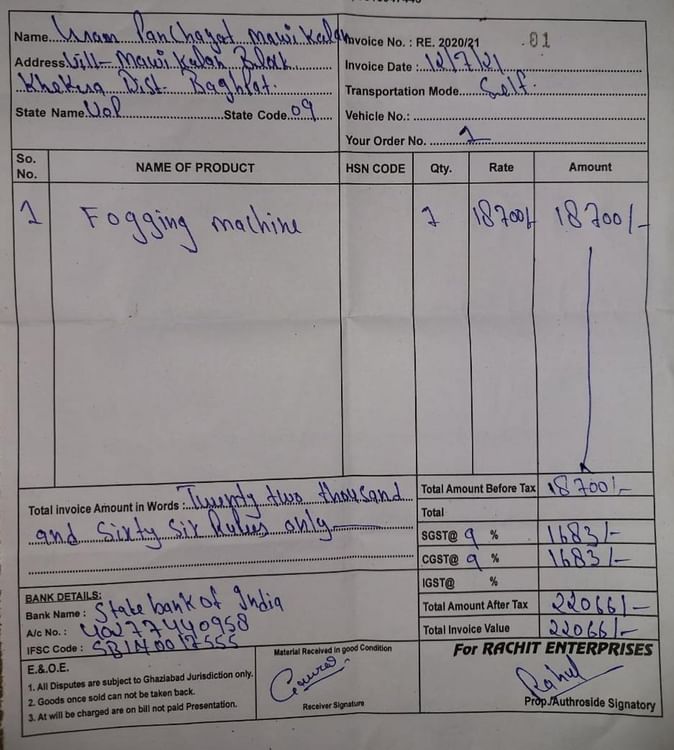 Name Gram Panchayat Mawi Kalan
Invoice No. : RE. 2020/21 01
Address Vill- Mawi Kalan Block
Invoice Date : 12/7/21
Khekra Dist. Baghpat.
Transportation Mode Self.
State Name U.P State Code 09
Vehicle No.:
Your Order No. 1
So. No. NAME OF PRODUCT HSN CODE Qty. Rate Amount
1 Fogging machine 1 18700/- 18700/-
Total invoice Amount in Words : Twenty two thousand
and Sixty Six Rules only
Total Amount Before Tax 18700/-
Total
SGST@ 9 % 1683/-
CGST@ 9 % 1683/-
IGST@ %
Total Amount After Tax 22066/-
Total Invoice Value 22066/-
BANK DETAILS:
Bank Name : State bank of India
A/c No. : 40277440958
IFSC Code : SBIN0017555
E.&.O.E.
1. All Disputes are subject to Ghaziabad Jurisdiction only.
2. Goods once sold can not be taken back.
3. At will be charged are on bill not paid Presentation.
Material Received in good Condition
Receiver Signature
For RACHIT ENTERPRISES
Rahul
Prop./Authroside Signatory